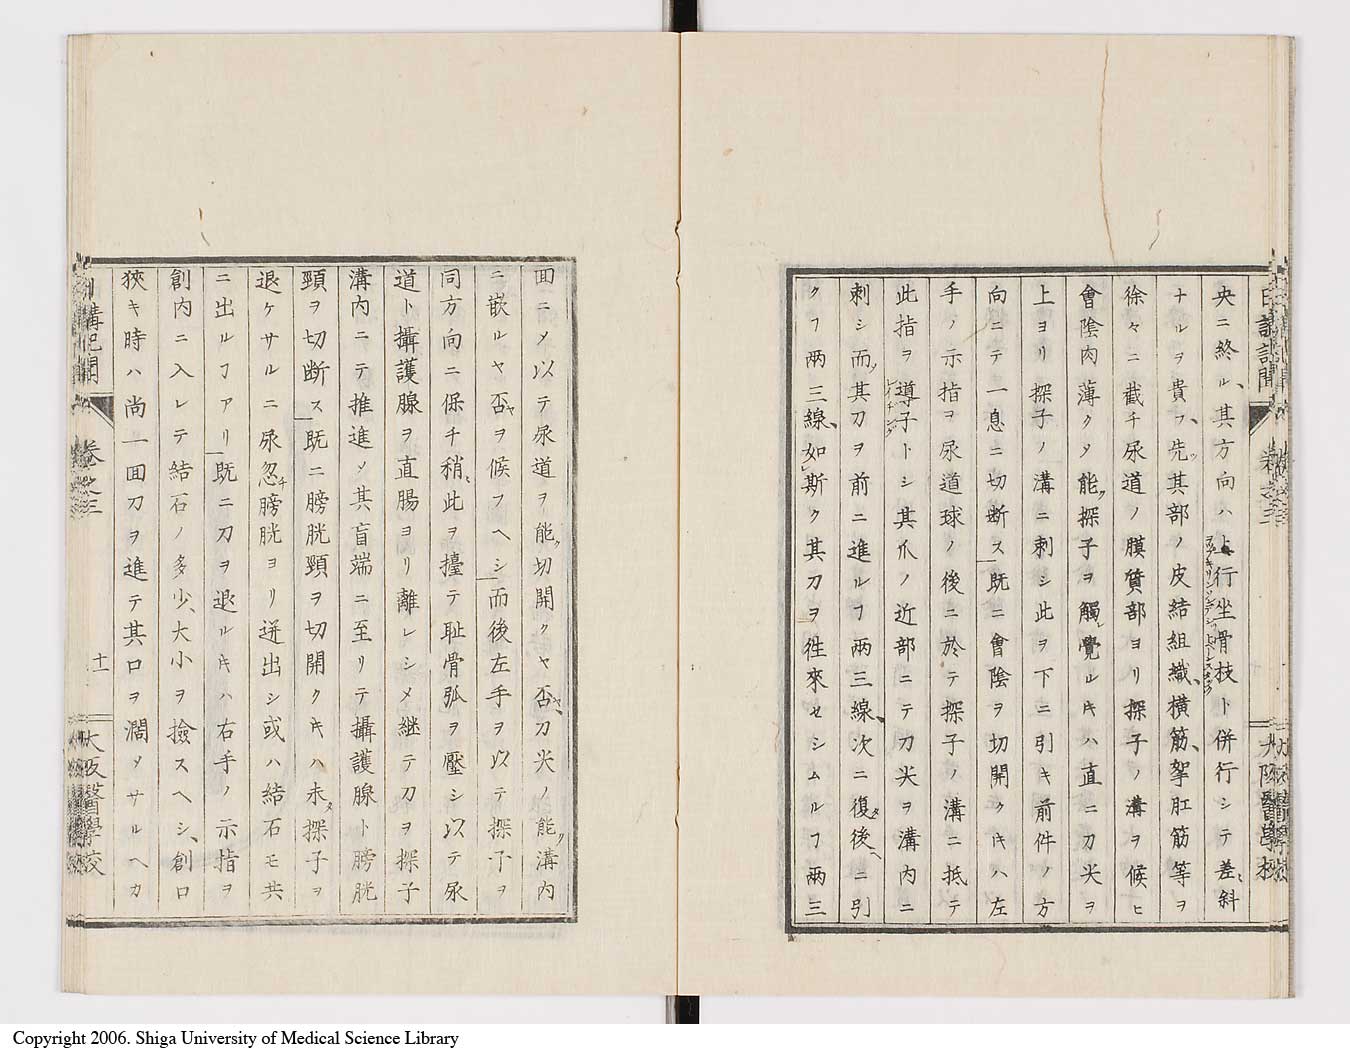 央ニ終ル、其方向ハ上行坐骨枝ト併行シテ差斜
ナルヲ貴フ、先ツ其部ノ皮結組織、横筋、挐肛筋等ヲ
徐々ニ截チ尿道ノ膜質部ヨリ探子ノ溝ヲ候ヒ
會陰肉薄クメ能ク探子ヲ觸レ覺ルキハ直ニ刀尖ヲ
上ヨリ探子ノ溝ニ刺シ此ヲ下ニ引キ前件ノ方
向ニテ一息ニ切断ス既ニ會陰ヲ切開クキハ左
手ノ示指ヲ尿道球ノ後ニ於テ探子ノ溝ニ抵テ
此指ヲ導子トシ其爪ノ近部ニテ刀尖ヲ溝内ニ
刺シ而ノ其刀ヲ前ニ進ルフ両三線、次ニ復タ後ヘニ引
クフ両三線、如斯ク其刀ヲ徃來セシムルフ両三
面ニメ以テ尿道ヲ能ク切開クヤ否ヤ、刀尖ノ能ク溝内
ニ嵌ルヤ否ヤヲ候フヘシ而後左手ヲ以テ探子ヲ
同方向ニ保チ稍ミ此ヲ擡テ耻骨弧ヲ壓シ以テ尿
道ト攝護腺ヲ直腸ヨリ離レシメ継テ刀ヲ探子
溝内ニテ推進メ其盲端ニ至リテ攝護腺ト膀胱
頸ヲ切断ス既ニ膀胱頸ヲ切開クキハ未タ探子ヲ
退ケサルニ尿忽チ膀胱ヨリ迸出シ或ハ結石モ共
ニ出ルフアリ既ニ刀ヲ退ルキハ右手ノ示指ヲ
創内ニ入レテ結石ノ多少、大小ヲ撿スヘシ、創口
狹キ時ハ尚一面刀ヲ進テ其口ヲ濶メサルヘカ
講記聞
卷之三
十一
大阪醫學校
Copyright 2006. Shiga University of Medical Science Library